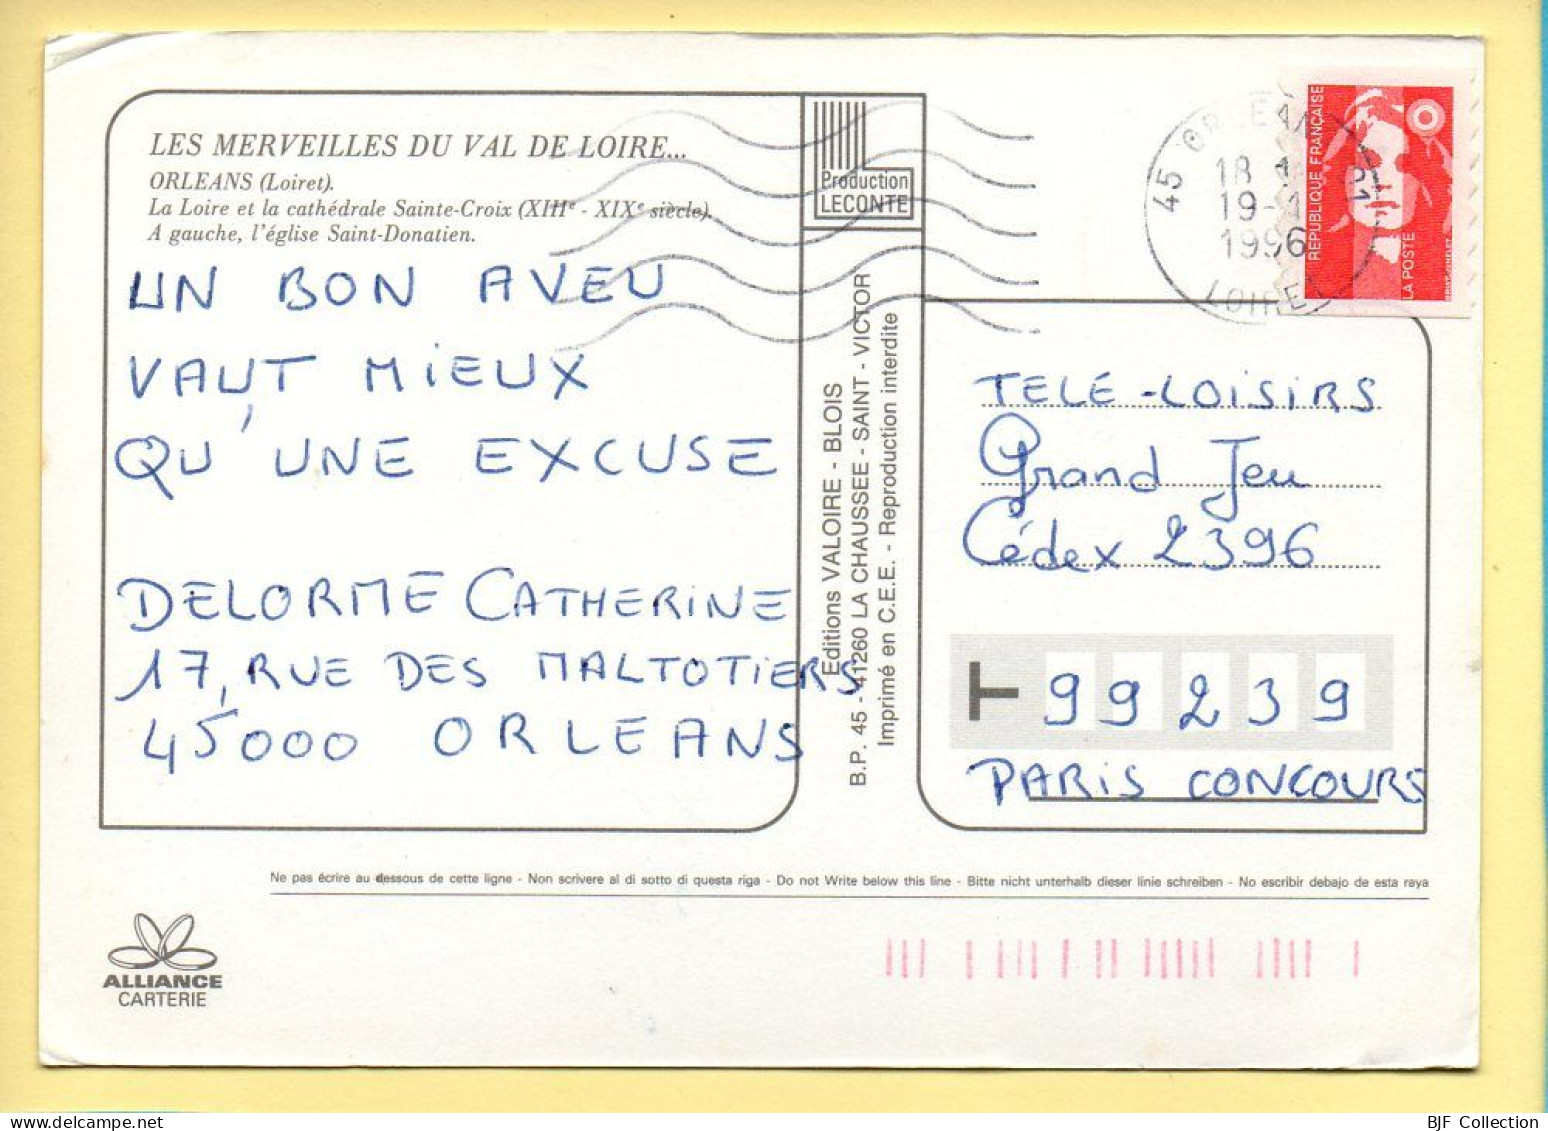 LES MERVEILLES DU VAL DE LOIRE...
ORLEANS (Loiret).
La Loire et la cathédrale Sainte-Croix (XIIIe - XIXe siècle).
A gauche, l'église Saint-Donatien.
UN BON AVEU
VAUT MIEUX
QU'UNE EXCUSE
DELORME CATHERINE
17, RUE DES MALTOTIERS
45000 ORLEANS
Production
LECONTE
Editions VALOIRE - BLOIS
B.P. 45 - 41260 LA CHAUSSEE - SAINT - VICTOR
Imprimé en C.E.E. - Reproduction interdite
45 ORLEANS 01
18
19-1
1996
LOIRET
REPUBLIQUE FRANÇAISE
LA POSTE
TELE-LOISIRS
Grand Jeu
Cédex 2396
99239
PARIS CONCOURS
Ne pas écrire au dessous de cette ligne - Non scrivere al di sotto di questa riga - Do not Write below this line - Bitte nicht unterhalb dieser linie schreiben - No escribir debajo de esta raya
ALLIANCE
CARTERIE
BJF Collection